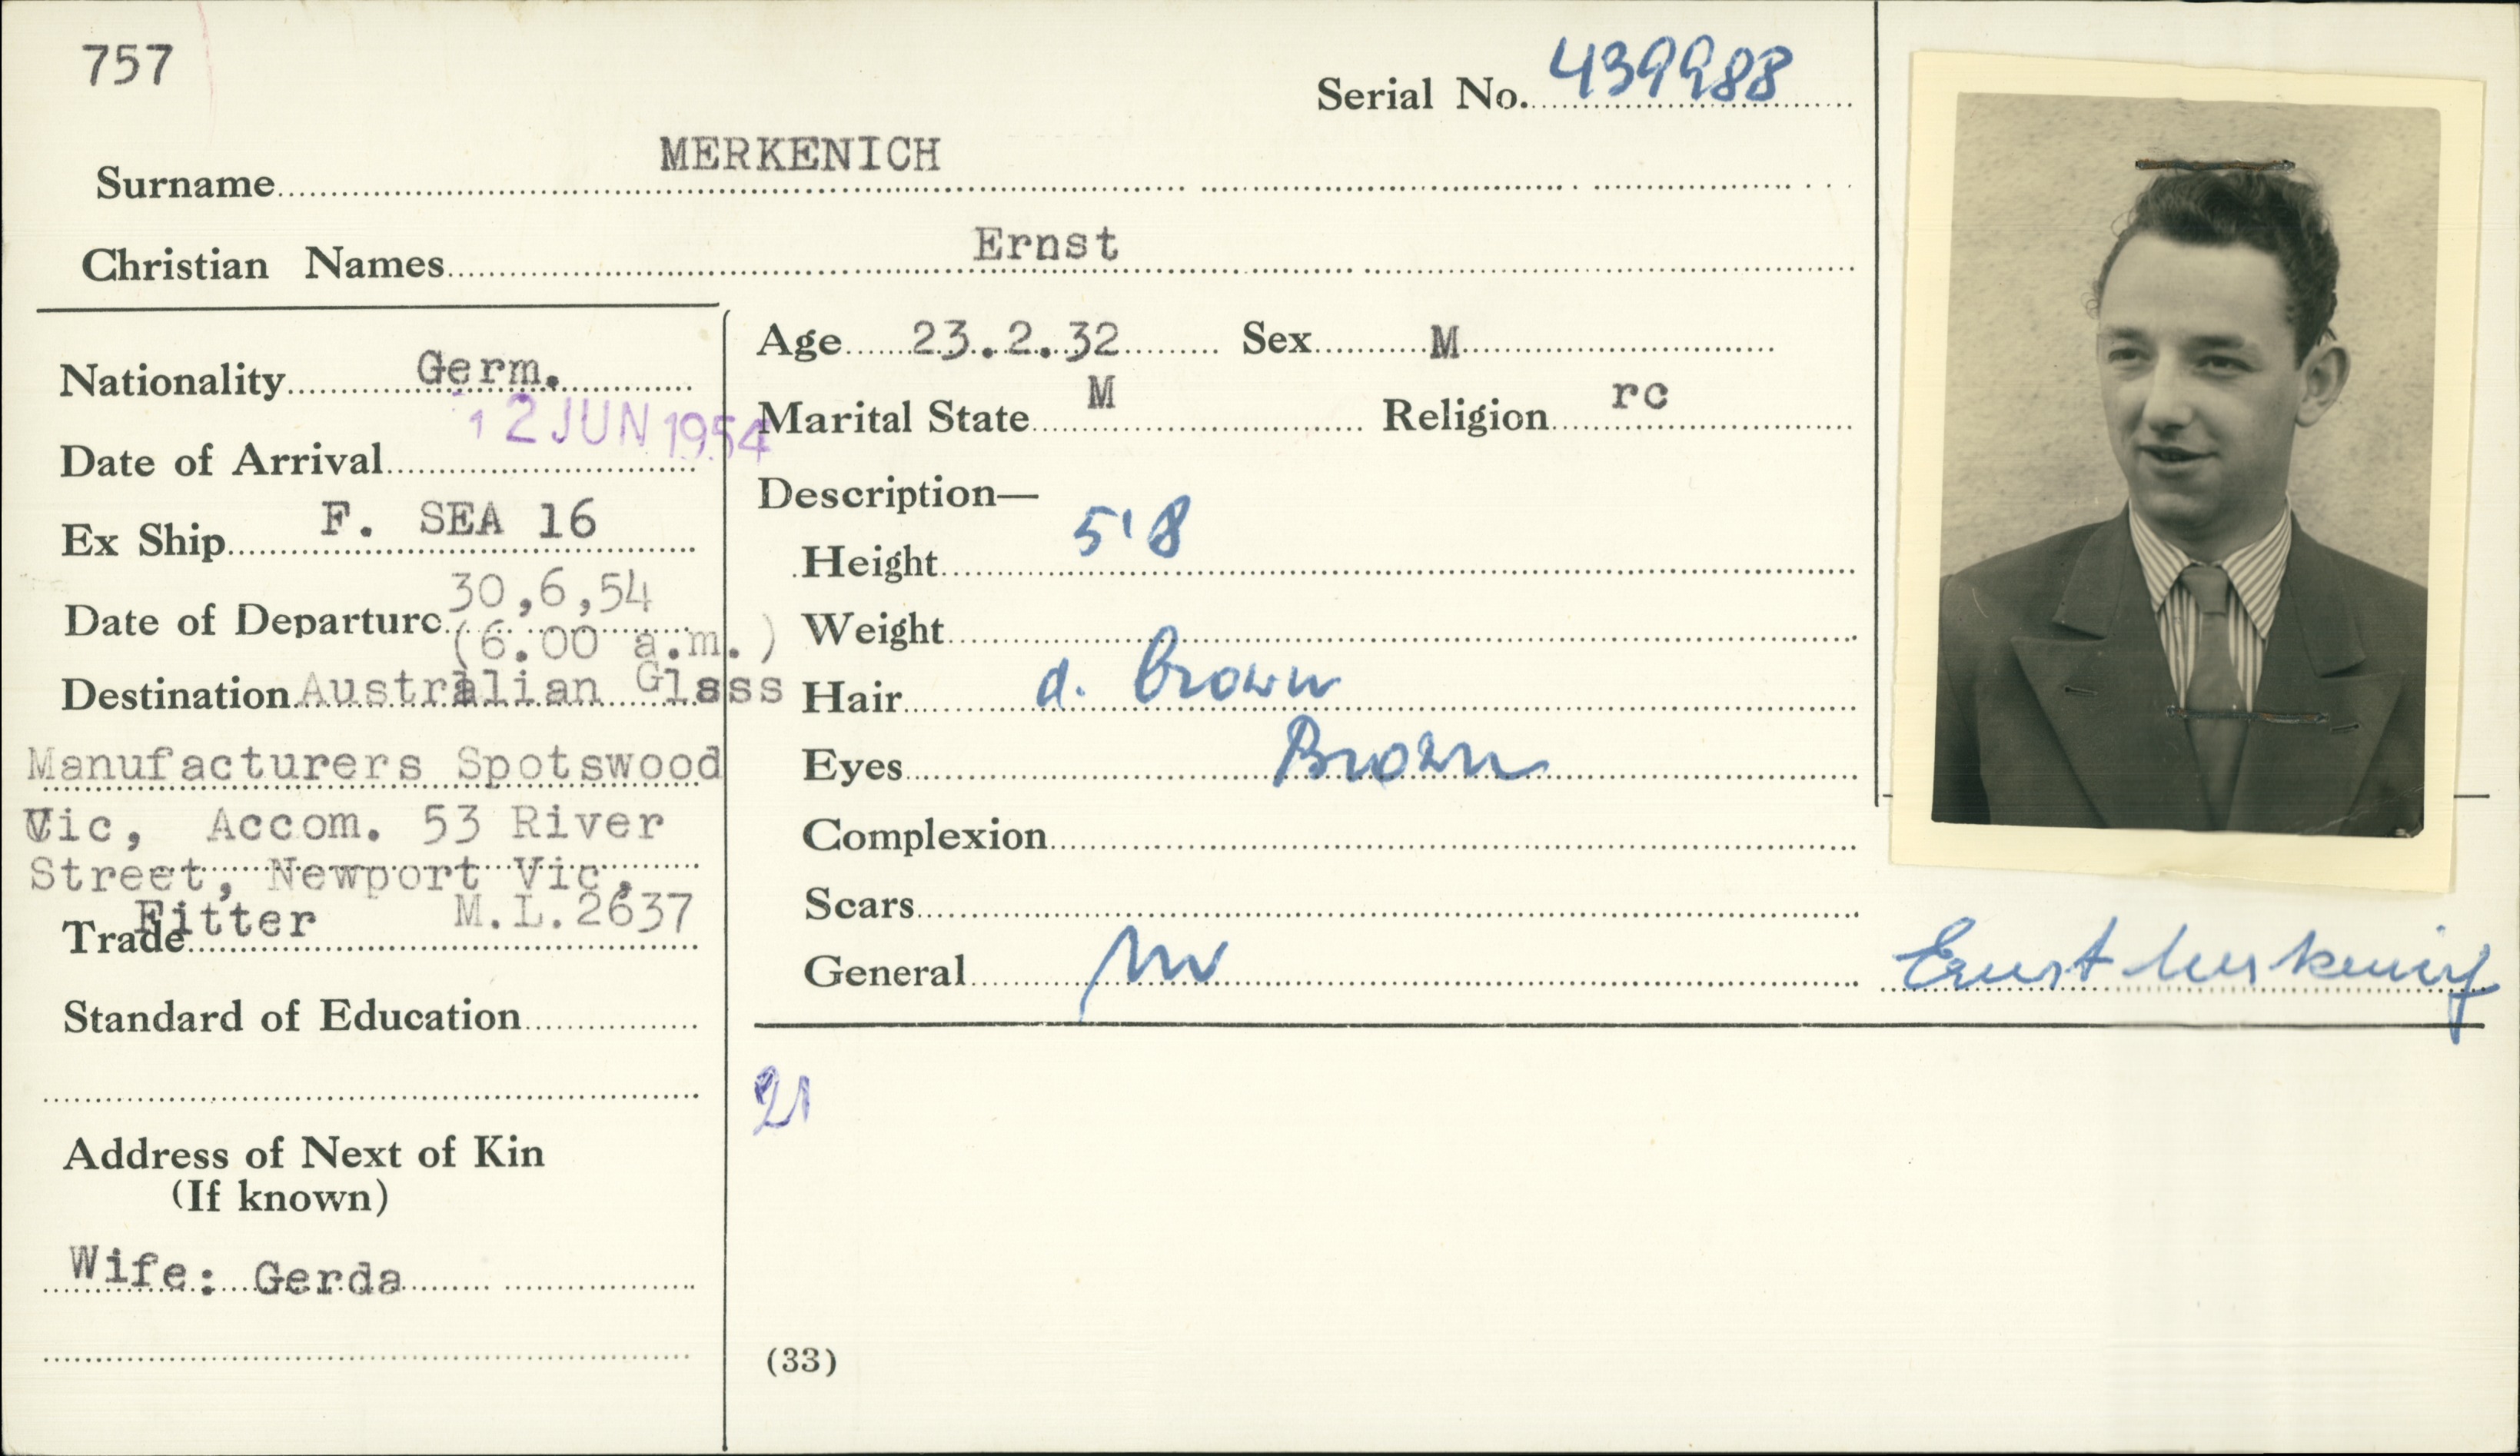 757
Serial No. 439988
Surname MERKENICH
Christian Names Ernst
Nationality Germ.
Date of Arrival 12 JUN 1954
Ex Ship F. SEA 16
Date of Departure 30,6,54
(6.00 a.m.)
Destination Australian Glass
Manufacturers Spotswood
Vic, Accom. 53 River
Street, Newport Vic.
Trade Fitter M.L.2637
Standard of Education
Address of Next of Kin
(If known)
Wife: Gerda
Age 23.2.32 Sex M
Marital State M Religion rc
Description—
Height 5'8
Weight
Hair d. brown
Eyes Brown
Complexion
Scars
General
Ernst Merkenich
21
(33)